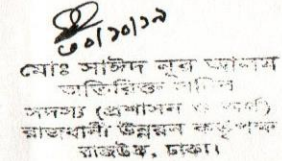 ৩০/১০/১৯
মোঃ সাঈদ নূর আলম
অতিরিক্ত সচিব
সদস্য (প্রশাসন ও অর্থ)
রাজধানী উন্নয়ন কর্তৃপক্ষ
রাজউক, ঢাকা।